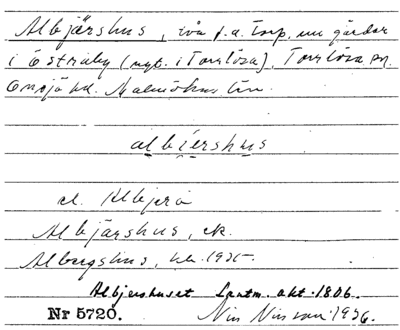 Albjärshus, två f.d. torp, nu gårdar
i Östraby (nyb. i Torrlösa), Torrlösa sn.
Onsjö hd. Malmöhus län.
albiershus
el. Albjera
Albjärshus, ek.
Albergshus, 1925.
Albjershuset Lantm. akt. 1806.
Nr 5720. Nils Nilsson 1936.